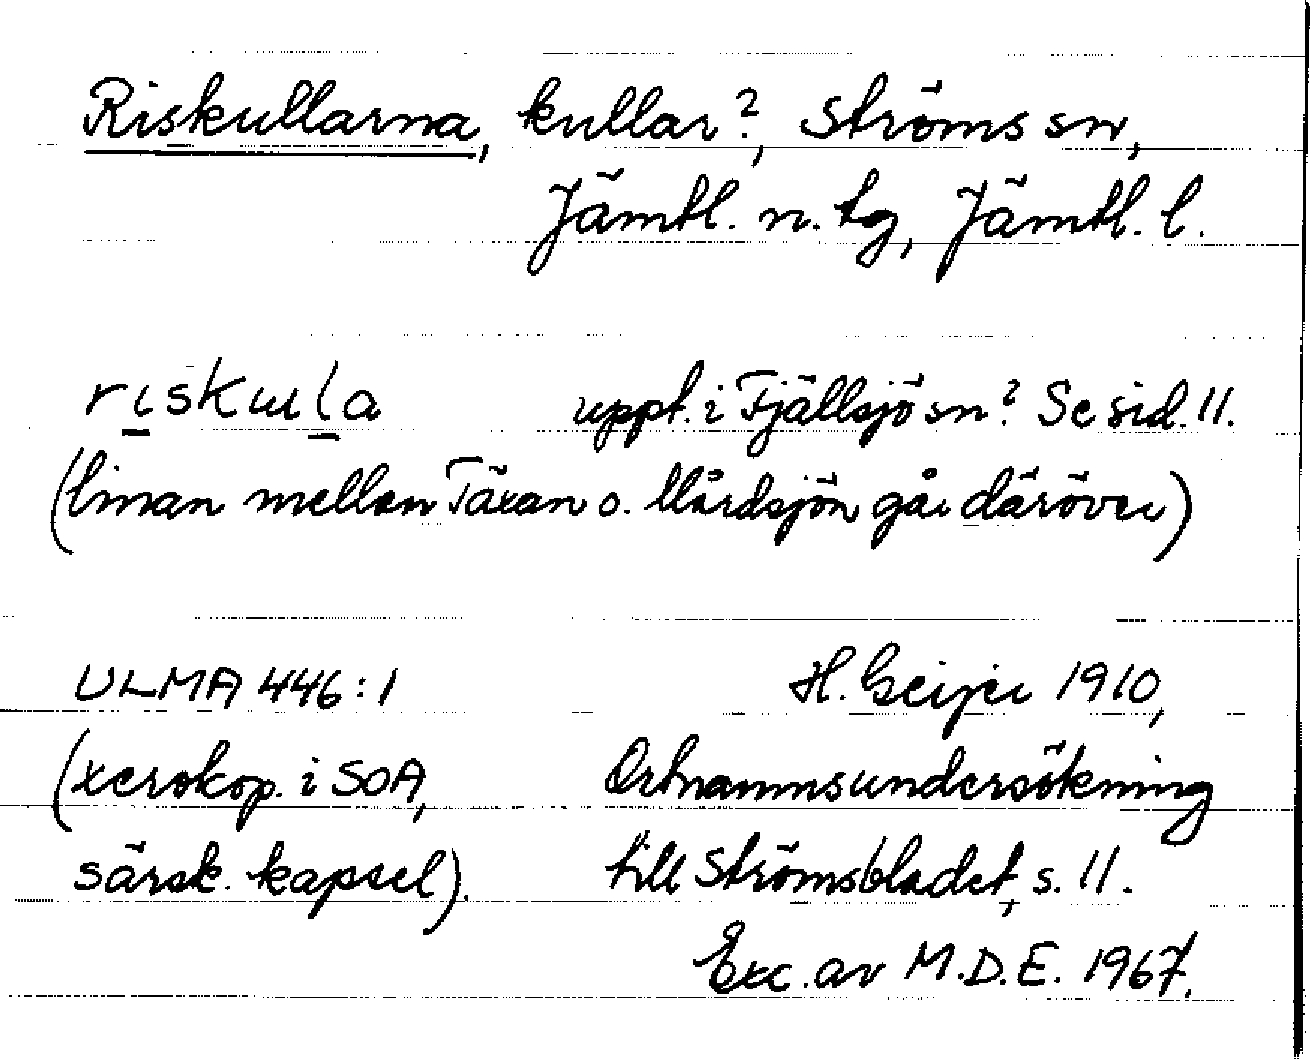 Riskullarna, kullar?, Ströms sn,
Jämtl. n. tg, Jämtl. l.
rɩskɯla uppt. i Fjällsjö sn? Se sid. 11.
(linan mellan Täxan o. Mårdsjön går däröver)
ULMA 446:1 H. Geijer 1910,
(xerokop. i SOA, Ortnamnsundersökning
särsk. kapsel). till Strömsbladet, s. 11.
Exc. av M.D.E. 1967.